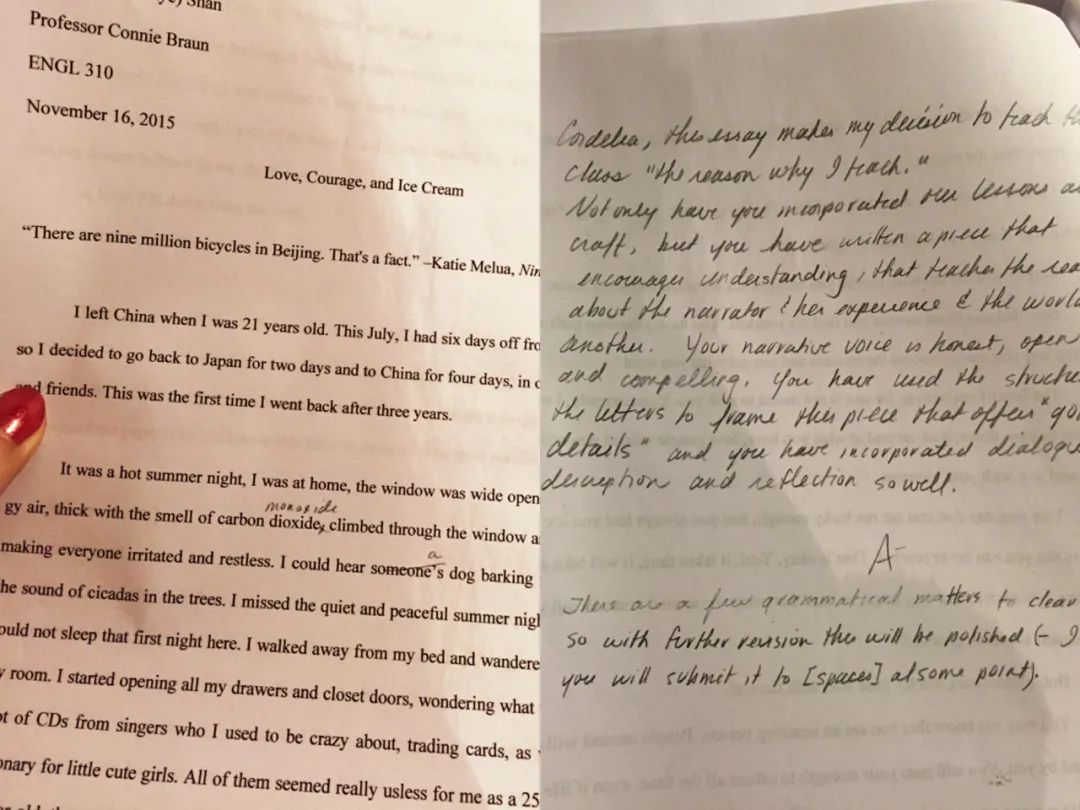 Shan
Professor Connie Braun
ENGL 310
November 16, 2015
Love, Courage, and Ice Cream
“There are nine million bicycles in Beijing. That's a fact.” –Katie Melua, Nin
I left China when I was 21 years old. This July, I had six days off fro
so I decided to go back to Japan for two days and to China for four days, in
and friends. This was the first time I went back after three years.
It was a hot summer night, I was at home, the window was wide open
monoxide
gy air, thick with the smell of carbon dioxide, climbed through the window a
a
making everyone irritated and restless. I could hear someone's dog barking
he sound of cicadas in the trees. I missed the quiet and peaceful summer nigl
ould not sleep that first night here. I walked away from my bed and wandere
y room. I started opening all my drawers and closet doors, wondering what
ot of CDs from singers who I used to be crazy about, trading cards, as
onary for little cute girls. All of them seemed really usless for me as a 25
Cordelia, this essay makes my decision to teach th
class "the reason why I teach."
Not only have you incorporated our lessons
craft, but you have written a piece that
encourages understanding, that teaches the rea
about the narrator & her experience & the world
another. Your narrative voice is honest, open
and compelling. You have used the structu
the letters to frame this piece that offers "go
details" and you have incorporated dialogue
description and reflection so well.
A-
There are a few grammatical matters to clear
so with further revision this will be polished (- I
you will submit it to [spaces] at some point).